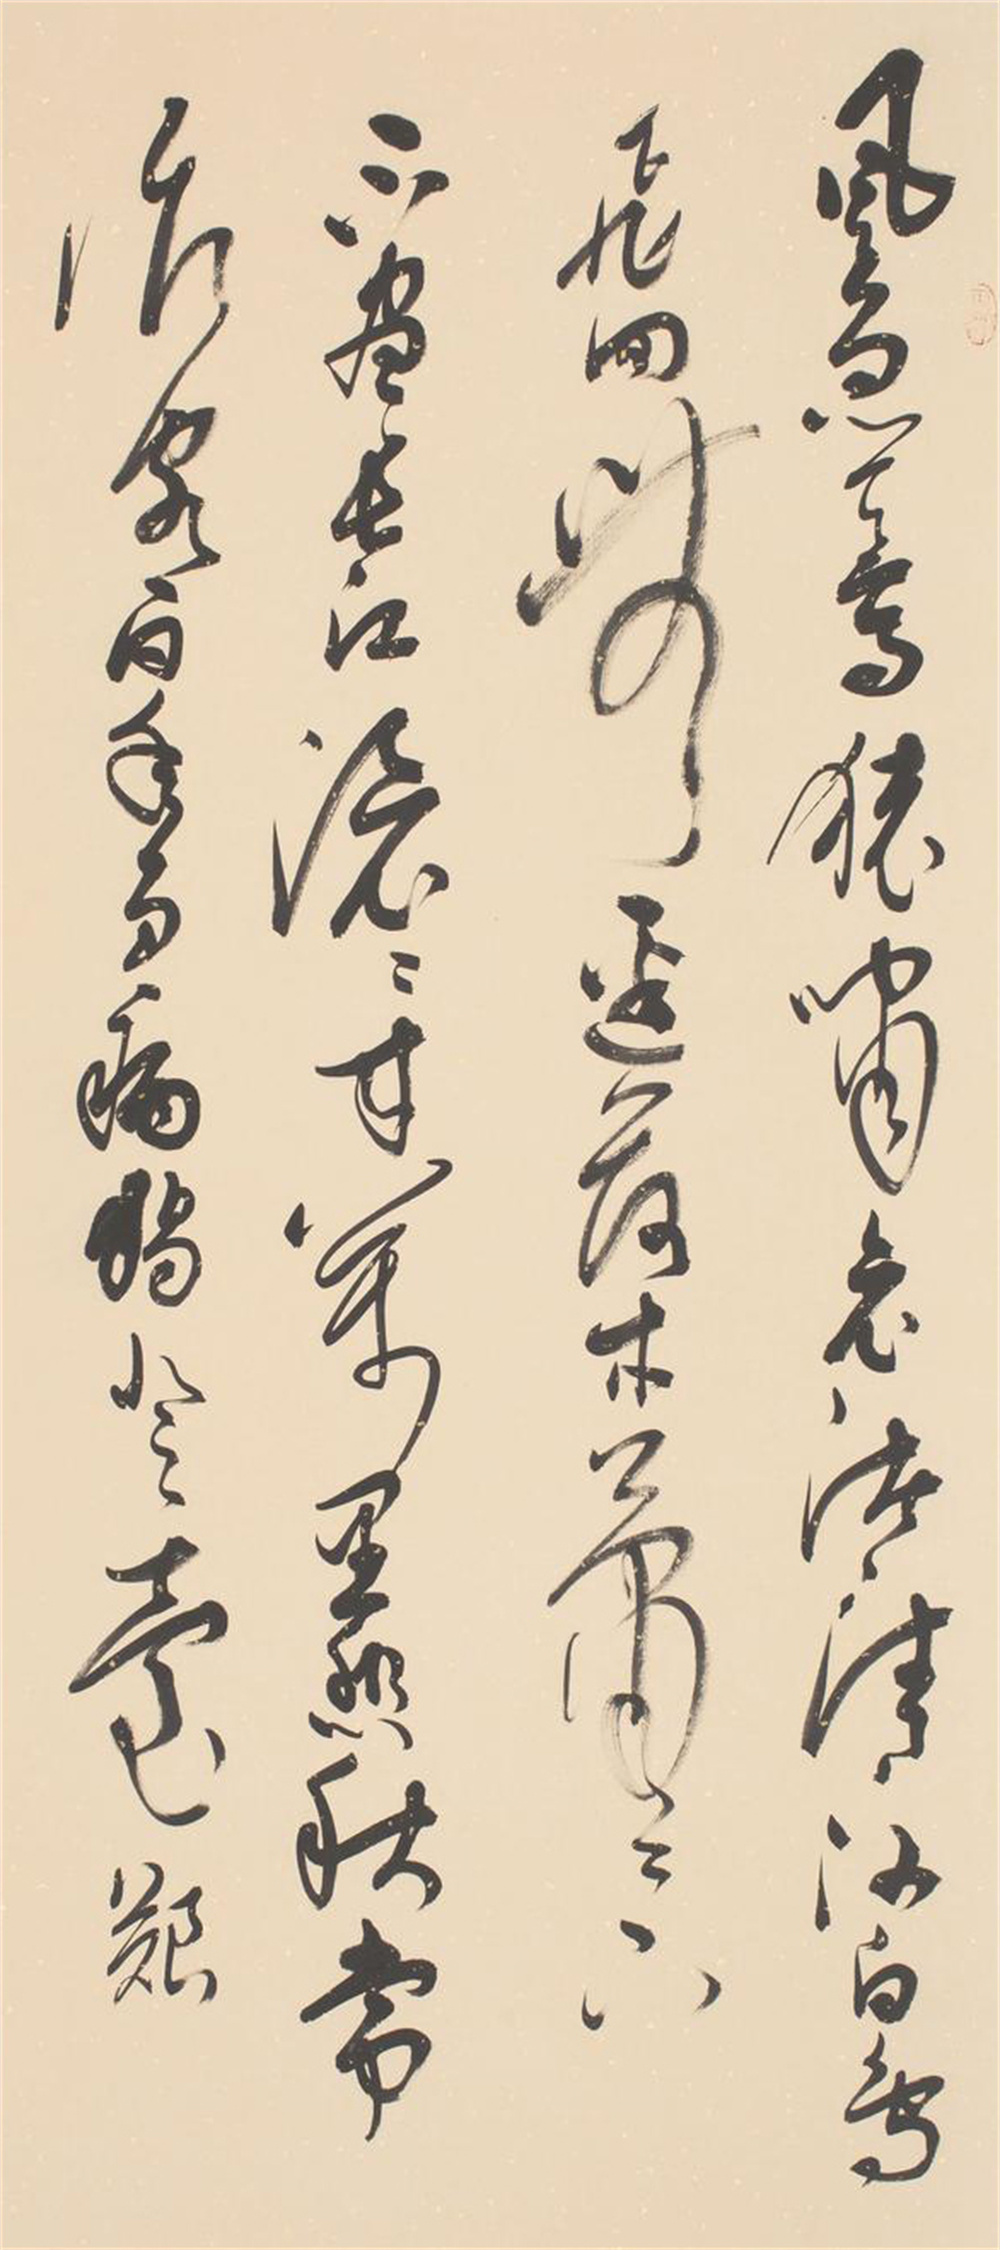 風急天高猿嘯哀渚清沙白鳥
飛回無邊落木蕭〻下
不盡長江滾〻來萬里悲秋常
作客百年多病獨登臺艱